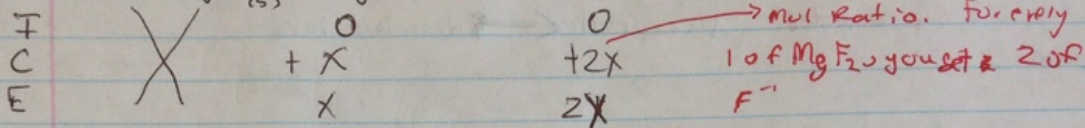 (s)
I 0 0 → mol Ratio. For every
C + x +2x 1 of MgF₂, you get 2 of
E x 2x F⁻¹